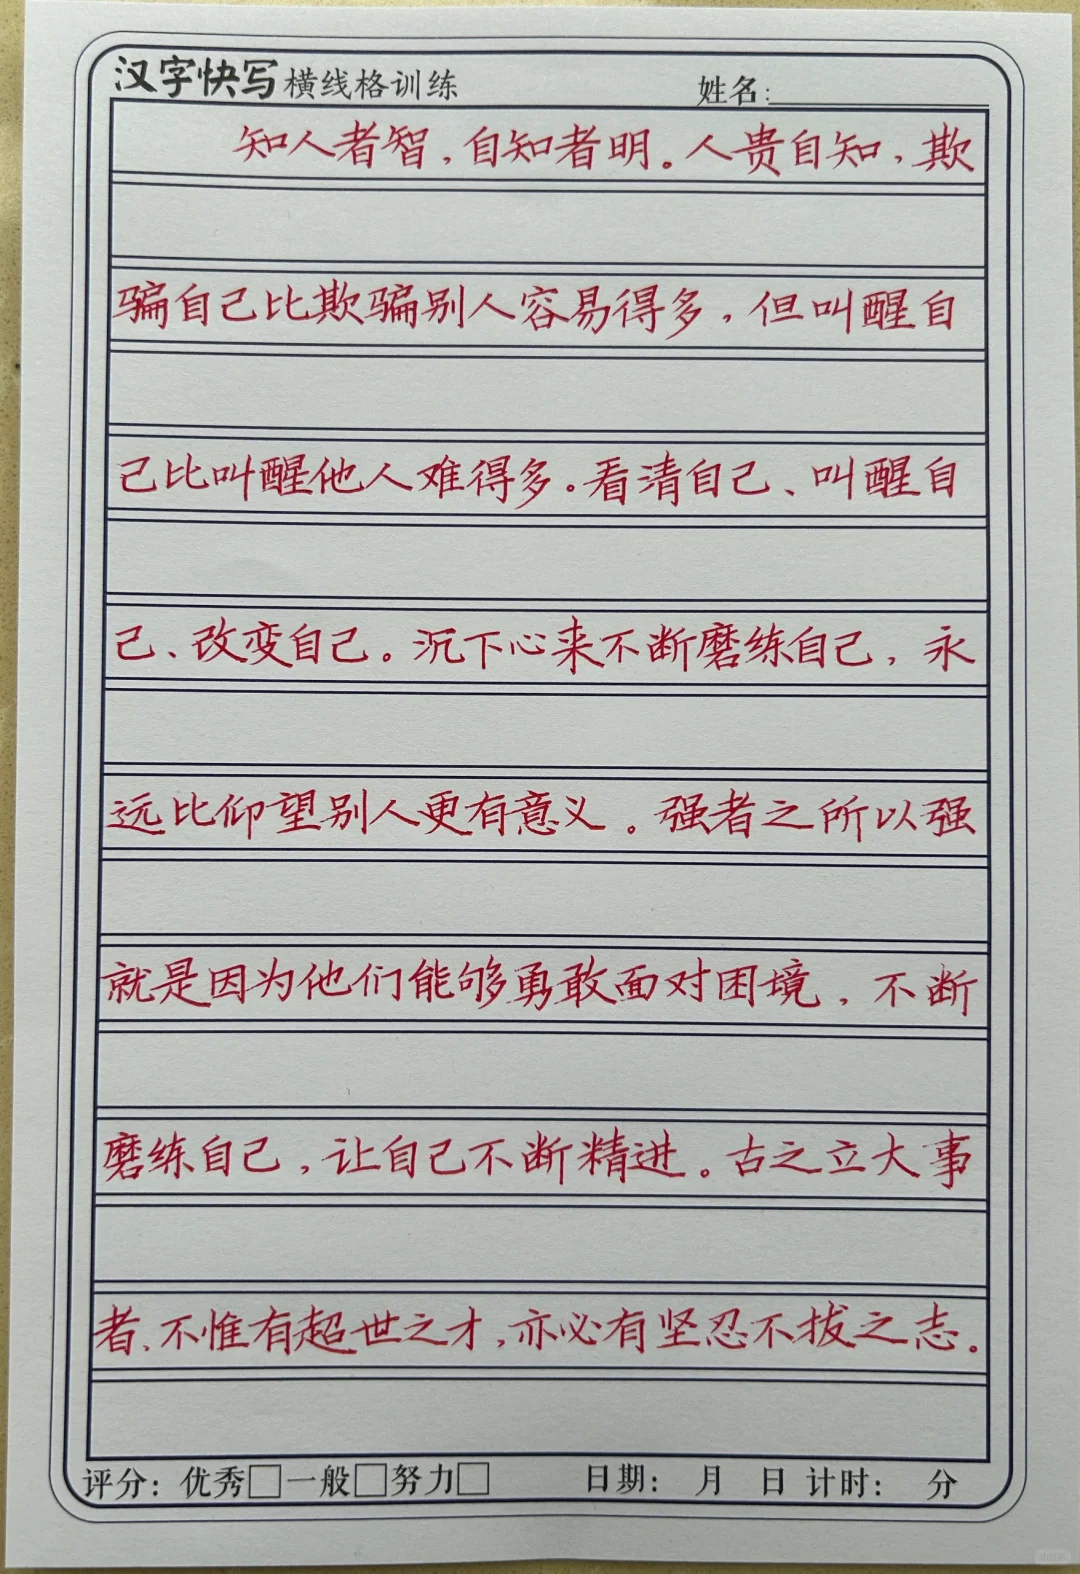 汉字快写横线格训练 姓名:
知人者智,自知者明。人贵自知,欺
骗自己比欺骗别人容易得多,但叫醒自
己比叫醒他人难得多。看清自己、叫醒自
己、改变自己。沉下心来不断磨练自己,永
远比仰望别人更有意义。强者之所以强
就是因为他们能够勇敢面对困境,不断
磨练自己,让自己不断精进。古之立大事
者、不惟有超世之才,亦必有坚忍不拔之志。
评分: 优秀□一般□努力□ 日期: 月 日 计时: 分